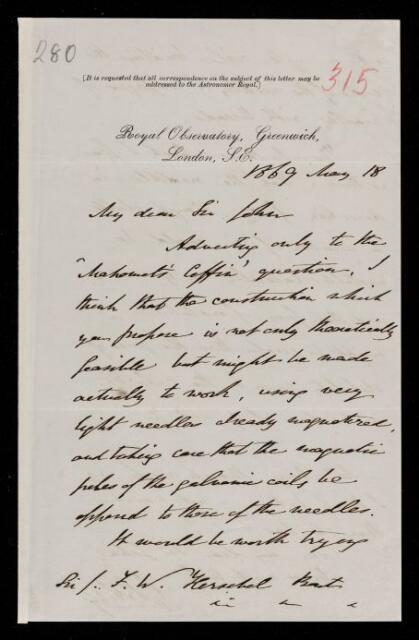 280
[It is requested that all correspondence on the subject of this letter may be
addressed to the Astronomer Royal.]
315
Royal Observatory, Greenwich,
London, S.E.
1869 May 18
My dear Sir John
Adverting only to the
"Mahomet's Coffin" question, I
think that the construction which
you propose is not only theoretically
feasible but might be made
actually to work, using very
light needles already magnetized,
and taking care that the magnetic
poles of the galvanic coils be
opposed to those of the needles.
It would be worth trying
Sir J. F. W. Herschel Bart